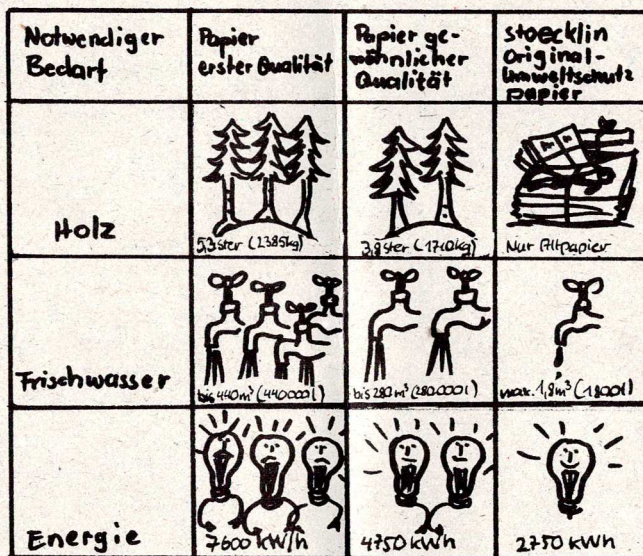 Notwendiger
Bedarf
Papier
erster Qualität
Papier ge-
wöhnlicher
Qualität
stoecklin
Original-
Umweltschutz
papier
Holz
5,3 ster (2385kg)
3,8 ster (1710kg)
Nur Altpapier
Frischwasser
bis 440m³ (440000l)
bis 280m³ (280000l)
max. 1,8m³ (1800l)
Energie
7600 kW/h
4750 kWh
2750 kWh